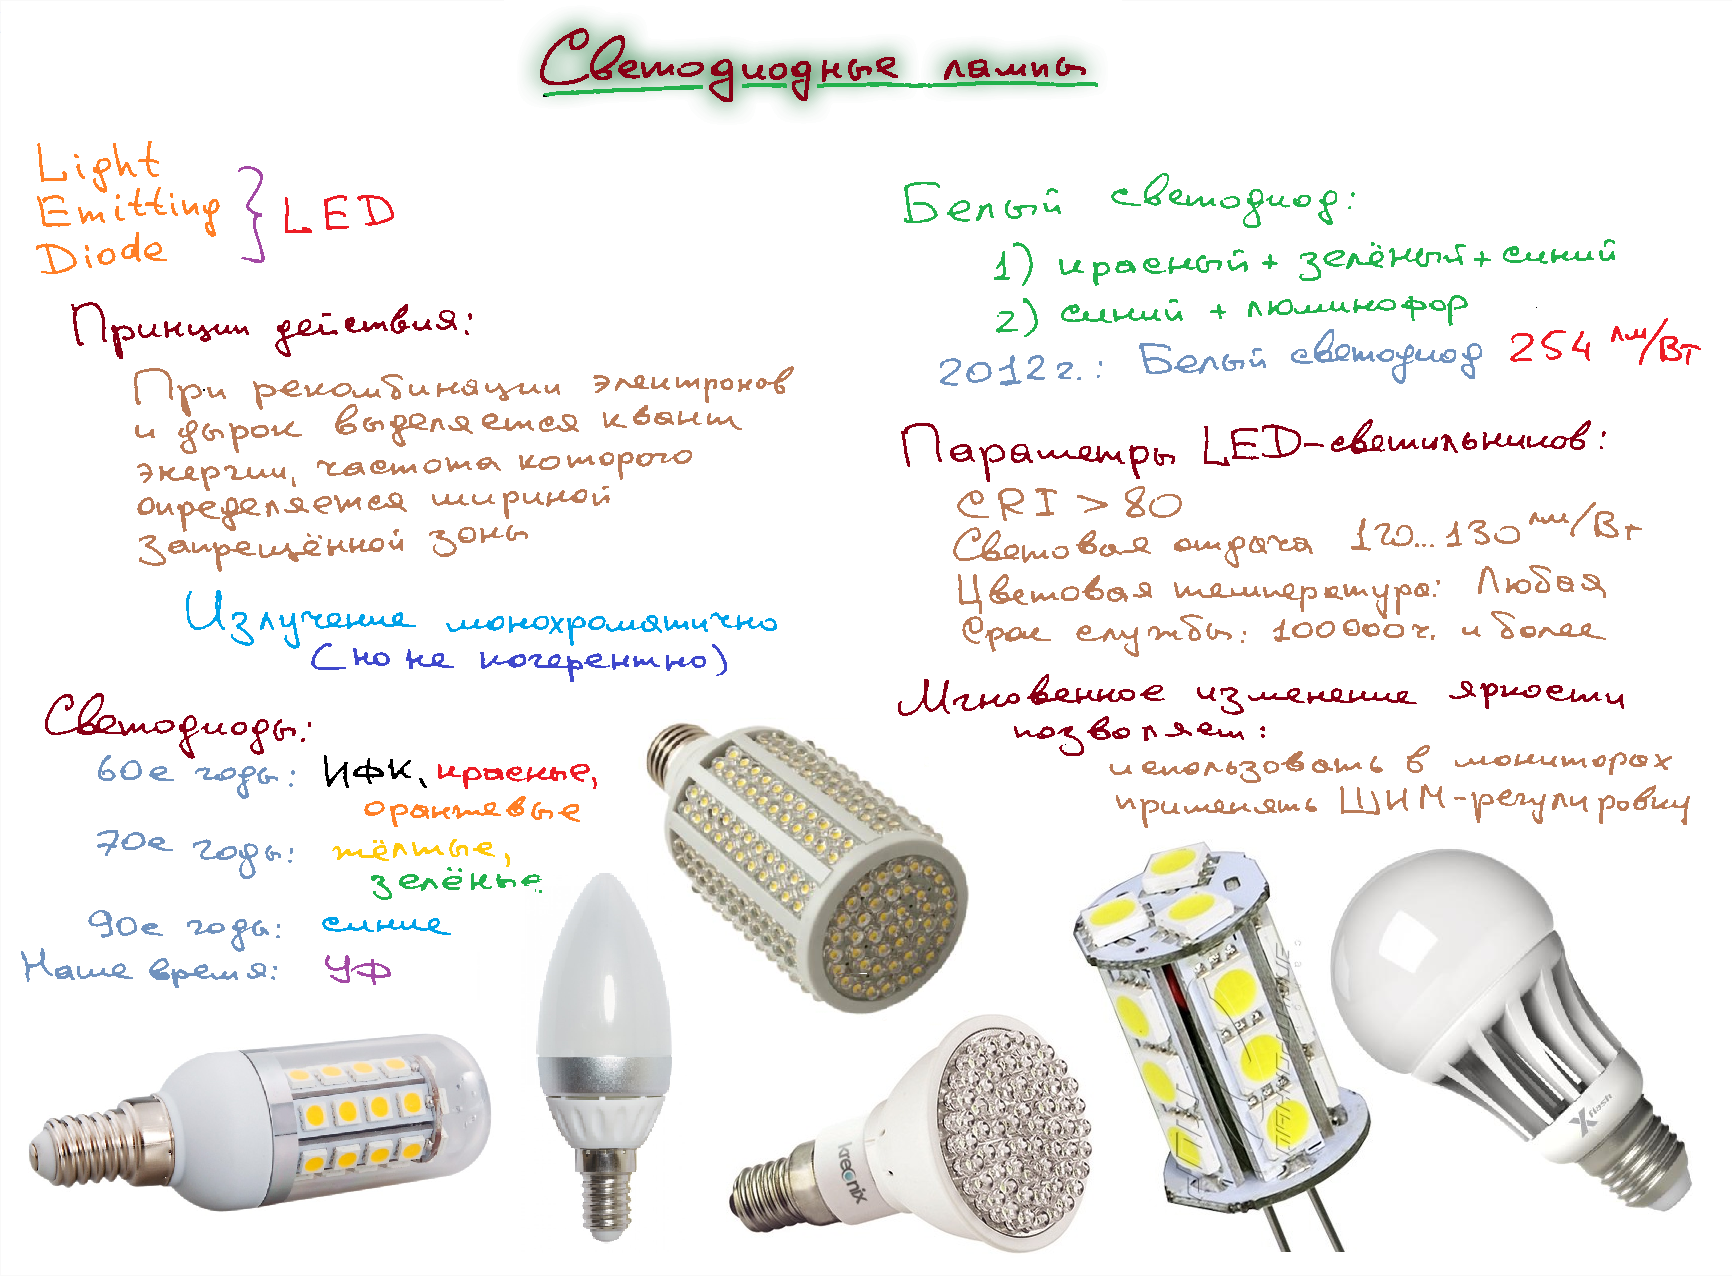 Светодиодные лампы
Light
Emitting
Diode
LED
Принцип действия:
При рекомбинации электронов
и дырок выделяется квант
энергии, частота которого
определяется шириной
запрещённой зоны
Излучение монохроматично
(но не когерентно)
Светодиоды:
60е годы: ИФК, красные,
оранжевые
70е годы: жёлтые,
зелёные
90е годы: синие
Наше время: УФ
Белый светодиод:
1) красный + зелёный + синий
2) синий + люминофор
2012г.: Белый светодиод 254 лм/Вт
Параметры LED-светильников:
CRI > 80
Световая отдача 120...130 лм/Вт
Цветовая температура: Любая
Срок службы: 100000ч. и более
Мгновенное изменение яркости
позволяет:
использовать в мониторах
применять ШИМ-регулировку
kreonix
X flash